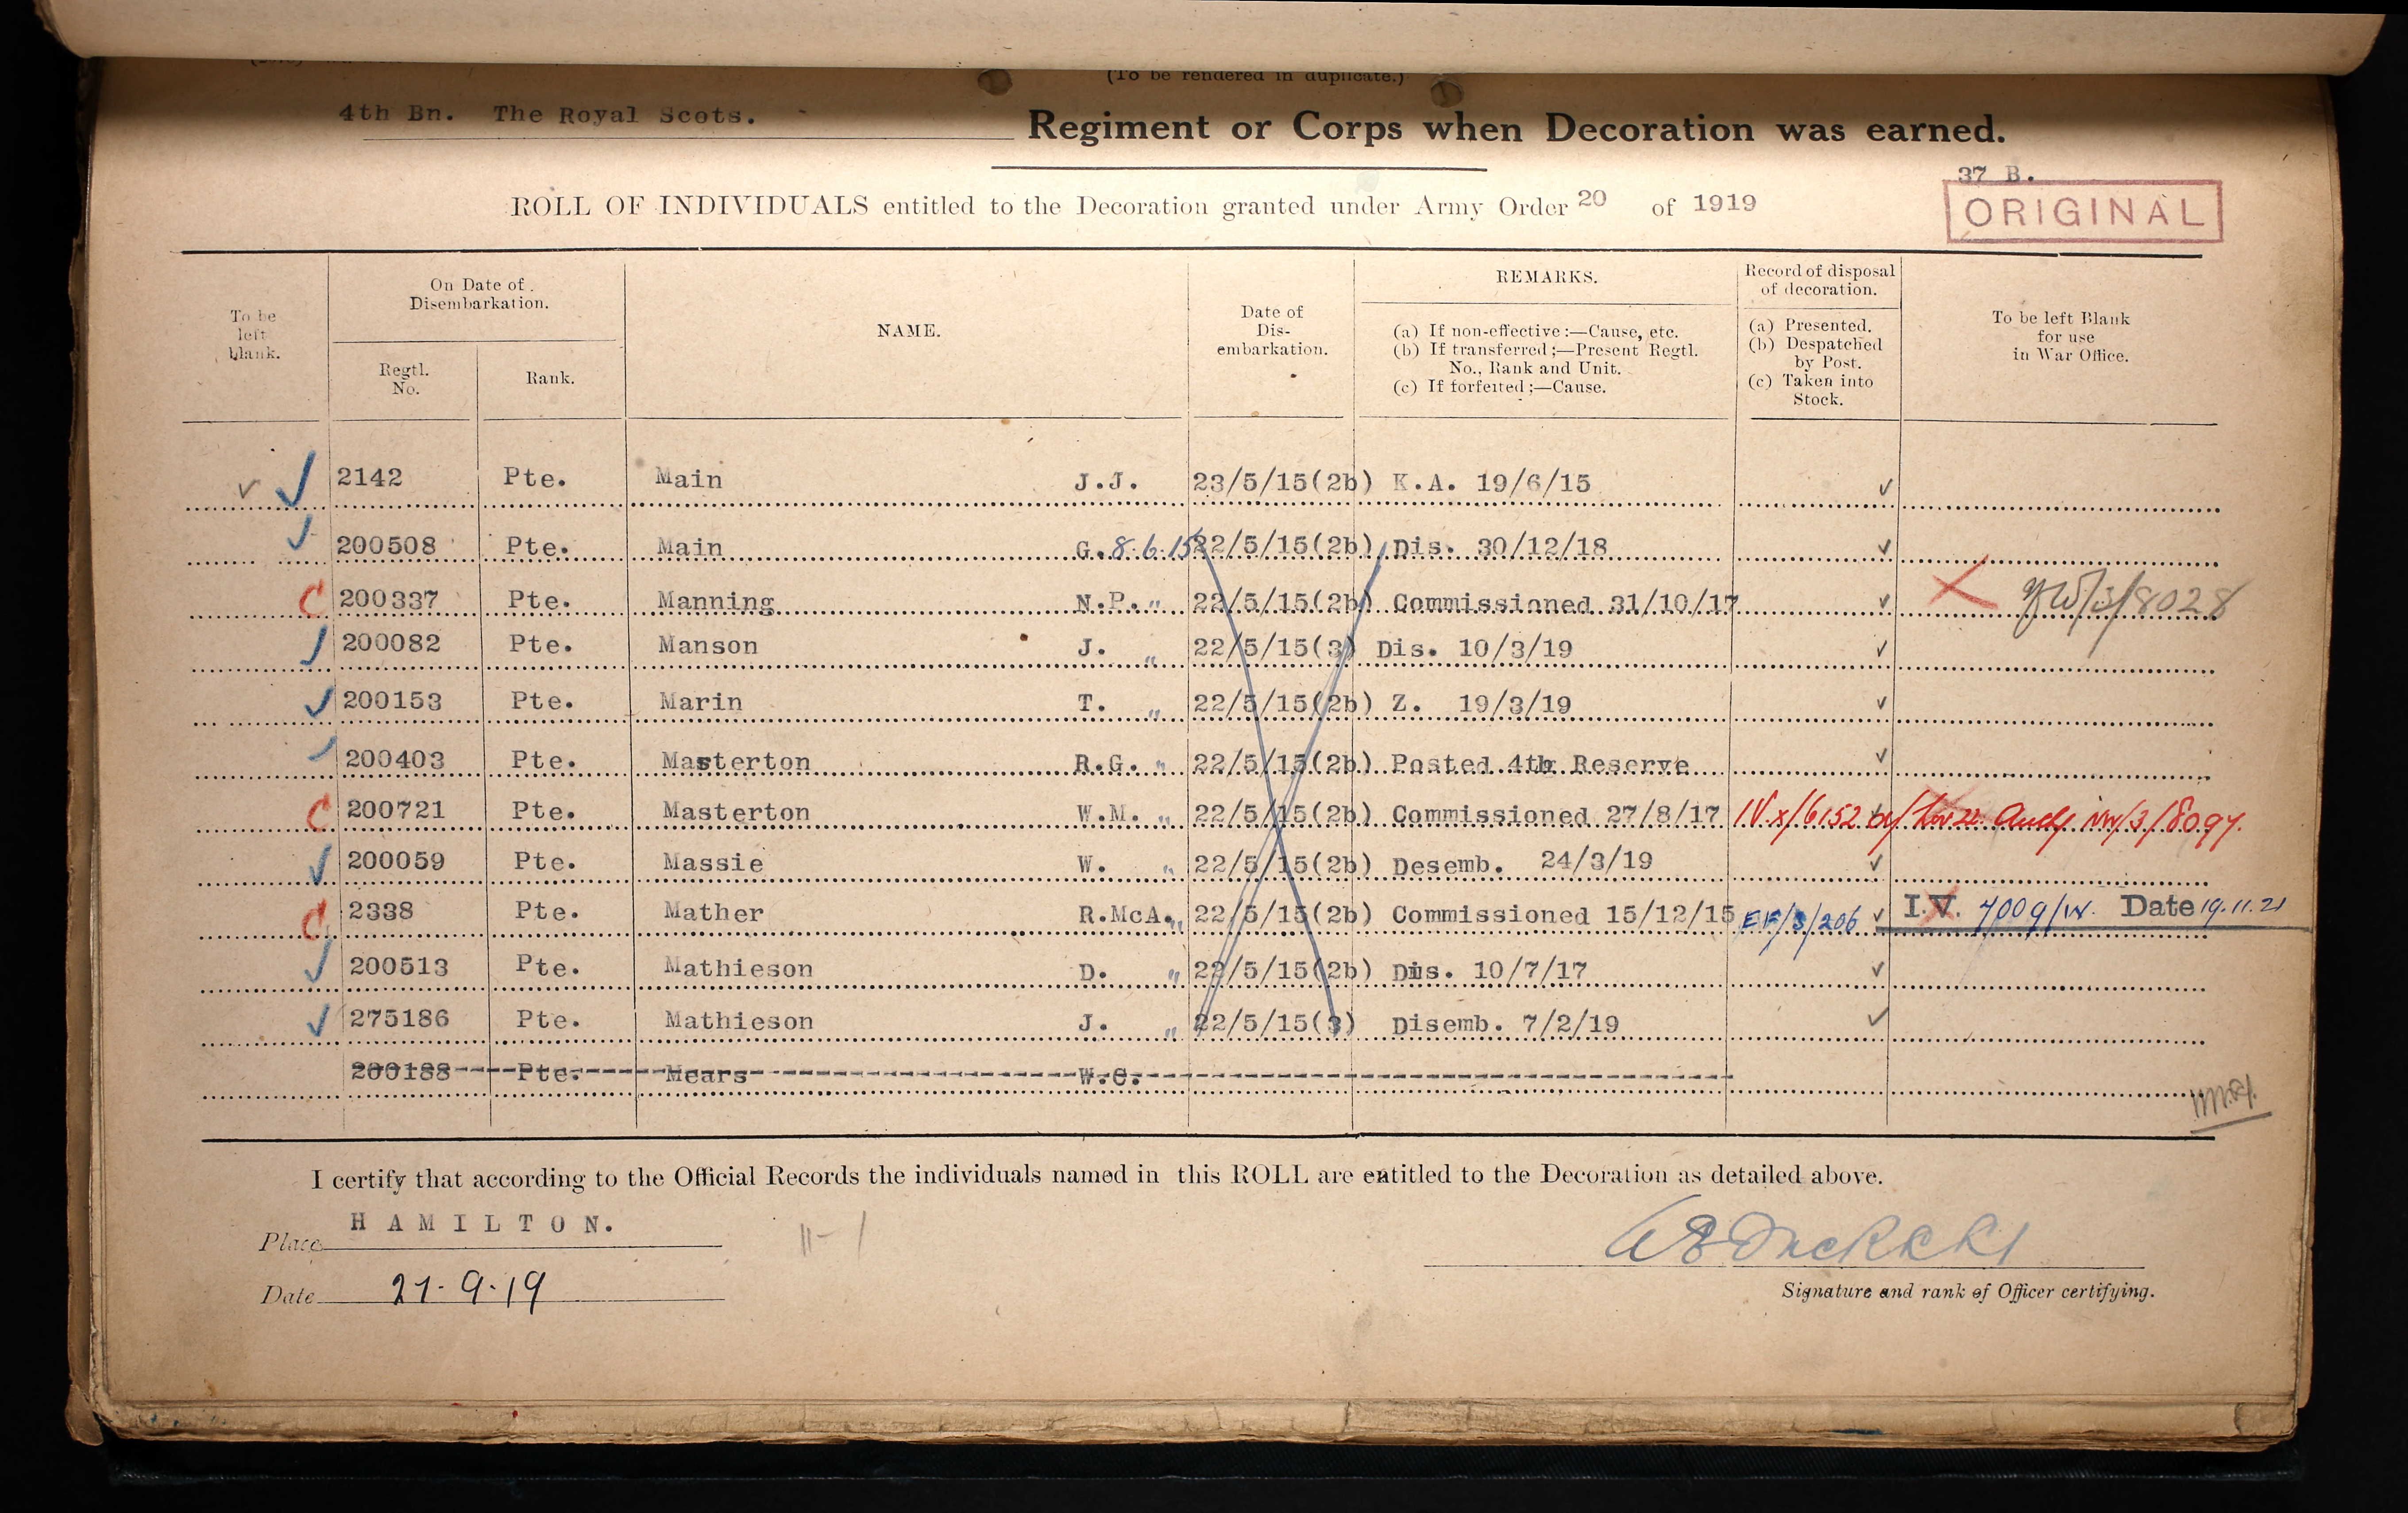 (To be rendered in duplicate.)
4th Bn. The Royal Scots. Regiment or Corps when Decoration was earned.
37 B.
ROLL OF INDIVIDUALS entitled to the Decoration granted under Army Order 20 of 1919
ORIGINAL
To be left blank.
On Date of Disembarkation.
Regtl. No.
Rank.
NAME.
Date of Dis-
embarkation.
REMARKS.
(a) If non-effective:—Cause, etc.
(b) If transferred;—Present Regtl.
No., Rank and Unit.
(c) If forfeited;—Cause.
Record of disposal
of decoration.
(a) Presented.
(b) Despatched
by Post.
(c) Taken into
Stock.
To be left Blank
for use
in War Office.
2142 Pte. Main J.J. 23/5/15(2b) K.A. 19/6/15
200508 Pte. Main G. 8.6.15 22/5/15(2b) Dis. 30/12/18
C 200337 Pte. Manning N.P. " 22/5/15(2b) Commissioned 31/10/17 /3/8028
200082 Pte. Manson J. " 22/5/15(3) Dis. 10/3/19
200153 Pte. Marin T. " 22/5/15(2b) Z. 19/3/19
200403 Pte. Masterton R.G. " 22/5/15(2b) Posted 4th Reserve
C 200721 Pte. Masterton W.M. " 22/5/15(2b) Commissioned 27/8/17 IV x/6152 NW/3/8097.
200059 Pte. Massie W. " 22/5/15(2b) Desemb. 24/3/19
C 2338 Pte. Mather R.McA. " 22/5/15(2b) Commissioned 15/12/15 EF/3/206 I.V. 7009/W. Date 19.11.21
200513 Pte. Mathieson D. " 22/5/15(2b) Dis. 10/7/17
275186 Pte. Mathieson J. " 22/5/15(3) Disemb. 7/2/19
200188 Pte. Mears W.C.
I certify that according to the Official Records the individuals named in this ROLL are entitled to the Decoration as detailed above.
Place HAMILTON.
Date 21-9-19
Signature and rank of Officer certifying.